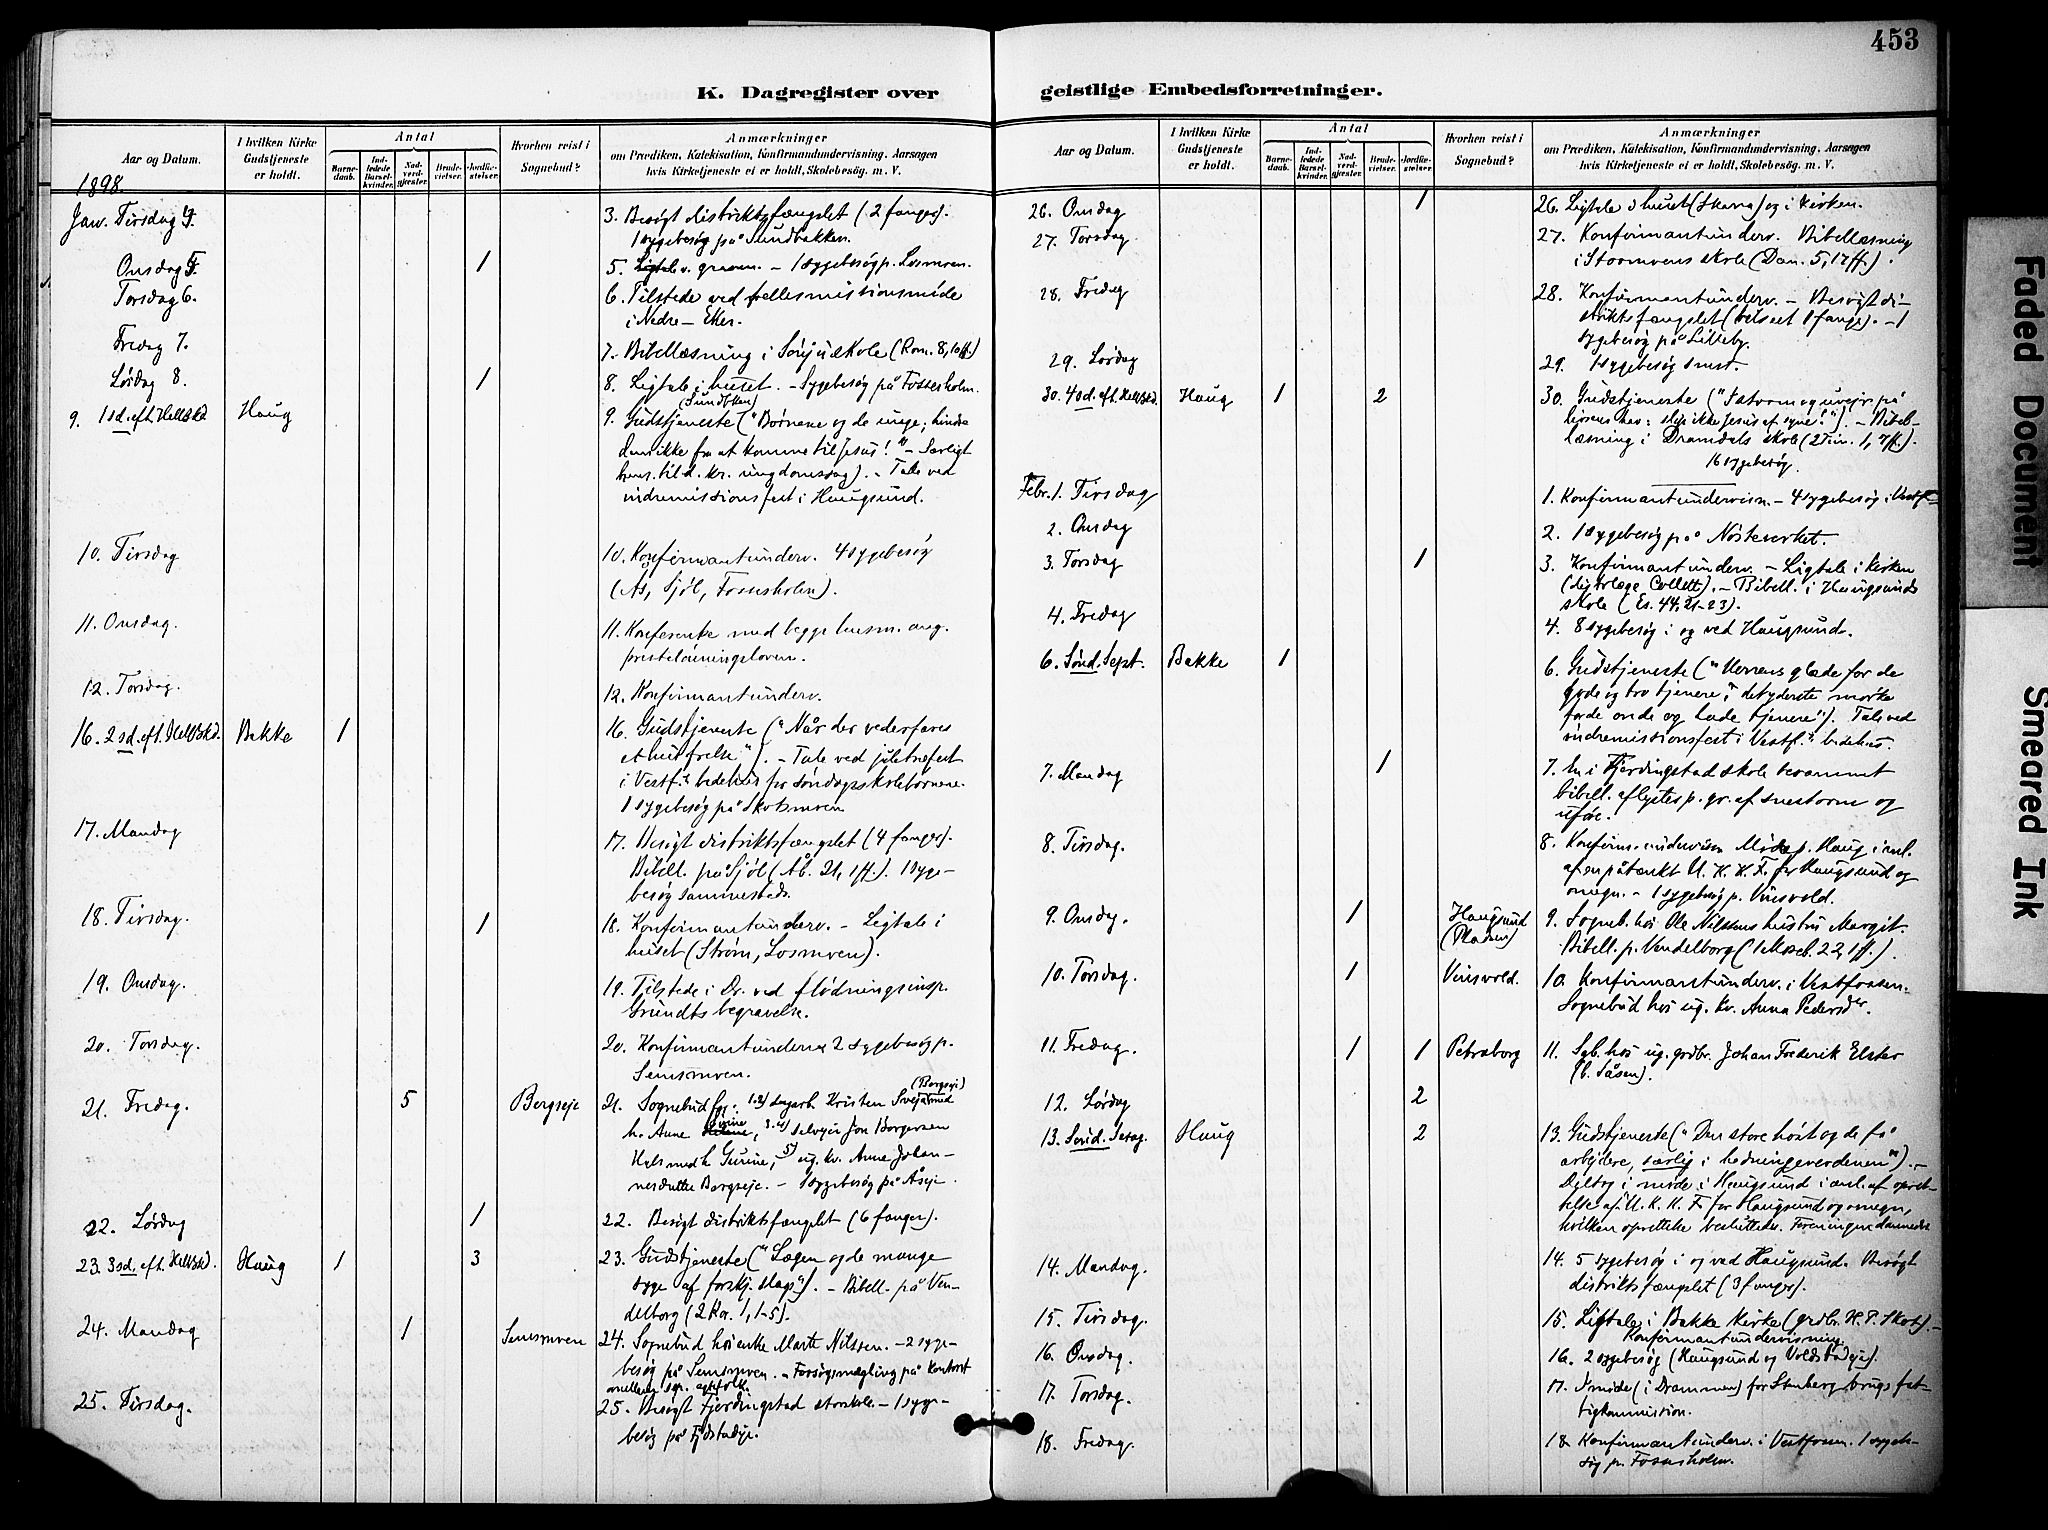 453
K. Dagregister over geistlige Embedsforretninger.
Aar og Datum.
I hvilken Kirke Gudstjeneste er holdt.
Antal
Barnedaab.
Indledede Barselkvinder.
Nadverdgjester.
Brudevielser.
Jordfæstelser.
Hvorhen reist i Sognebud?
Anmærkninger
om Prædiken, Katekisation, Konfirmandundervisning. Aarsagen
hvis Kirketjeneste ei er holdt, Skolebesøg. m. V.
1898.
Jan. Tirsdag 4.
3. Besøgt distriktsfængslet (2 fanger).
1 sygebesøg på Sundbakken.
Onsdag 5. 1
5. Ligtale v. graven. – 1 sygebesøg p. Losmoen.
Torsdag 6.
6. Tilstede ved fællesmissionsmøde
i Nedre-Eker.
Fredag 7.
7. Bibellæsning i skole (Rom. 8, 10 ff.)
Lørdag 8. 1
8. Ligtale i huset. – Sygebesøg på Fossesholm.
(Sundbkken)
9. 1 sd. eft. Hell3kd Haug
9. Gudstjeneste ("Børnene og de unge; hindre
dem ikke fra at komme til Jesus!" – Særligt
hens. til d. kr. ungdomsdag). – Tale ved
indremissionsfest i Haugsund.
10. Tirsdag
10. Konfirmantunderv. 4 sygebesøg
(Ås, Sjøl, Fossesholm).
11. Onsdag.
11. Konferenke med begge husm. ang.
presteløningsloven.
12. Torsdag.
12. Konfirmantunderv.
16. 2 sd. eft. Hell3kd. Bakke 1
16. Gudstjeneste ("Når der vederfares
et hus frelse"). – Tale ved juletræfest
i Vestf.s bedehus for søndagsskolebørnene.
1 sygebesøg på Skotsmoen
17. Mandag
17. Besøgt distriktsfængslet (4 fanger).
Bibell. på Sjøl (Åb. 21, 1 ff.). 1 syge-
besøg sammesteds.
18. Tirsdag. 1
18. Konfirmantunderv. – Ligtale i
huset (Strøm, Losmoen).
19. Onsdag.
19. Tilstede i Dr. ved flødningsinsp.
Grundts begravelse.
20. Torsdag.
20. Konfirmantunderv. 2 sygebesøg p.
Semsmoen.
21. Fredag. 5 Bergseje
(Borgseje)
21. Sognebud for: 1.2) dagarb. Kristen med
h. Anne , 3.4) selvejer Jon Borgersen
med h. Gurine, 5) ug. kv. Anne Johan-
nesdatter Borgseje. – Sygebesøg på Åseje.
22. Lørdag 1
22. Besøgt distriktsfængslet (6 fanger).
23. 3 sd. eft. Hell3kd. Haug 1 3
23. Gudstjeneste ("Lægen og de mange
syge af forskj. slags"). – Bibell. på Ven-
delborg (2 Kor. 1, 1-5).
24. Mandag 1 Semsmoen
24. Sognebud hos enke Marte Nilssen. – 2 syge-
besøg på Semsmoen. – Forsøgsmægling på kontoret
25. Tirsdag.
25. Besøgt Fjerdingstad storskole. – 1 syge-
besøg på
Aar og Datum.
I hvilken Kirke Gudstjeneste er holdt.
Antal
Barnedaab.
Indledede Barselkvinder.
Nadverdgjester.
Brudevielser.
Jordfæstelser.
Hvorhen reist i Sognebud?
Anmærkninger
om Prædiken, Katekisation, Konfirmandundervisning, Aarsagen
hvis Kirketjeneste ei er holdt, Skolebesøg. m. V.
26. Onsdag 1
26. Ligtale i huset (Skara) og i kirken.
27. Torsdag
27. Konfirmantunderv. Bibellæsning
i Stormoens skole (Dan. 5, 17 ff.).
28. Fredag
28. Konfirmantunderv. – Besøgt di-
striktsfængslet (1 fange). – 1
sygebesøg på Lilleby.
29. Lørdag
29. 1 sygebesøg smst.
30. 4 sd. eft. Hell3kd. Haug 1 2
30. Gudstjeneste ("Storm og uvejr på
livsens hav: slip ikke Jesus af syne!"). – Bibel-
læsning i Dramdals skole (2 Tim. 1, 7 ff.).
16 sygebesøg.
Febr. 1. Tirsdag
1. Konfirmantundervisn. – 4 sygebesøg i Vestf.
2. Onsdag
2. 1 sygebesøg på Nøsteverket.
3. Torsdag 1
3. Konfirmantunderv. – Ligtale i kirken
(distrlæge Collett). – Bibell. i Haugsunds
skole (Es. 44, 21-23).
4. Fredag
4. 8 sygebesøg i og ved Haugsund.
6. Sønd. Sept. Bakke 1
6. Gudstjeneste ("Herrens glæde for de
gode og tro tjenere, det yderste mørke
for de onde og lade tjenere"). Tale ved
indremissionsfest i Vestf.s bedehus.
7. Mandag 1
7. En i Fjerdingstad skole berammet
bibell. aflystes p. gr. af snestorm og
uføre.
8. Tirsdag.
8. Konfirm.undervisn. Møde p. Haug i anl.
af en påtænkt U. K. K. F. for Haugsund og
omegn. – 1 sygebesøg p. Vinsvold.
9. Onsdag. 1 Haugsund (Pladsen)
9. Sogneb. hos Ole Nilssens hustru Margit.
Bibell. p. Vendelborg (1 Moseb. 22, 1 ff.).
10. Torsdag. 1 Vinsvold.
10. Konfirmantunderv. i Vestfossen.
Sognebud hos ug. kv. Anna Pedersdr
11. Fredag. 1 1 Petersborg
11. Sgb. hos ug. grdbr. Johan Frederik Elster
(b. Såsen).
12. Lørdag 2
13. Sønd. Sexag. Haug 2
13. Gudstjeneste ("Den store høst og de få
arbejdere, særlig i hedningeverdenen"). –
Deltog i møde i Haugsund i anl. af opret-
telse af U. K. K. F. for Haugsund og omegn,
hvilken oprettelse besluttedes. Foreningen dannedes
14. Mandag.
14. 5 sygebesøg i og ved Haugsund. Besøgt
distriktsfængslet (3 fanger).
15. Tirsdag.
15. Ligtale i Bakke kirke (grdbr. H. P. Skots). –
Konfirmantundervisning.
16. Onsdag.
16. 2 sygebesøg (Haugsund og Voldstadeje).
17. Torsdag.
17. I møde (i Drammen) for Stenberg brugs fat-
tigkommission.
18. Fredag.
18. Konfirmantunderv. i Vestfossen. 1 sygebe-
søg på Fossesholm.
Faded Document
Smeared Ink